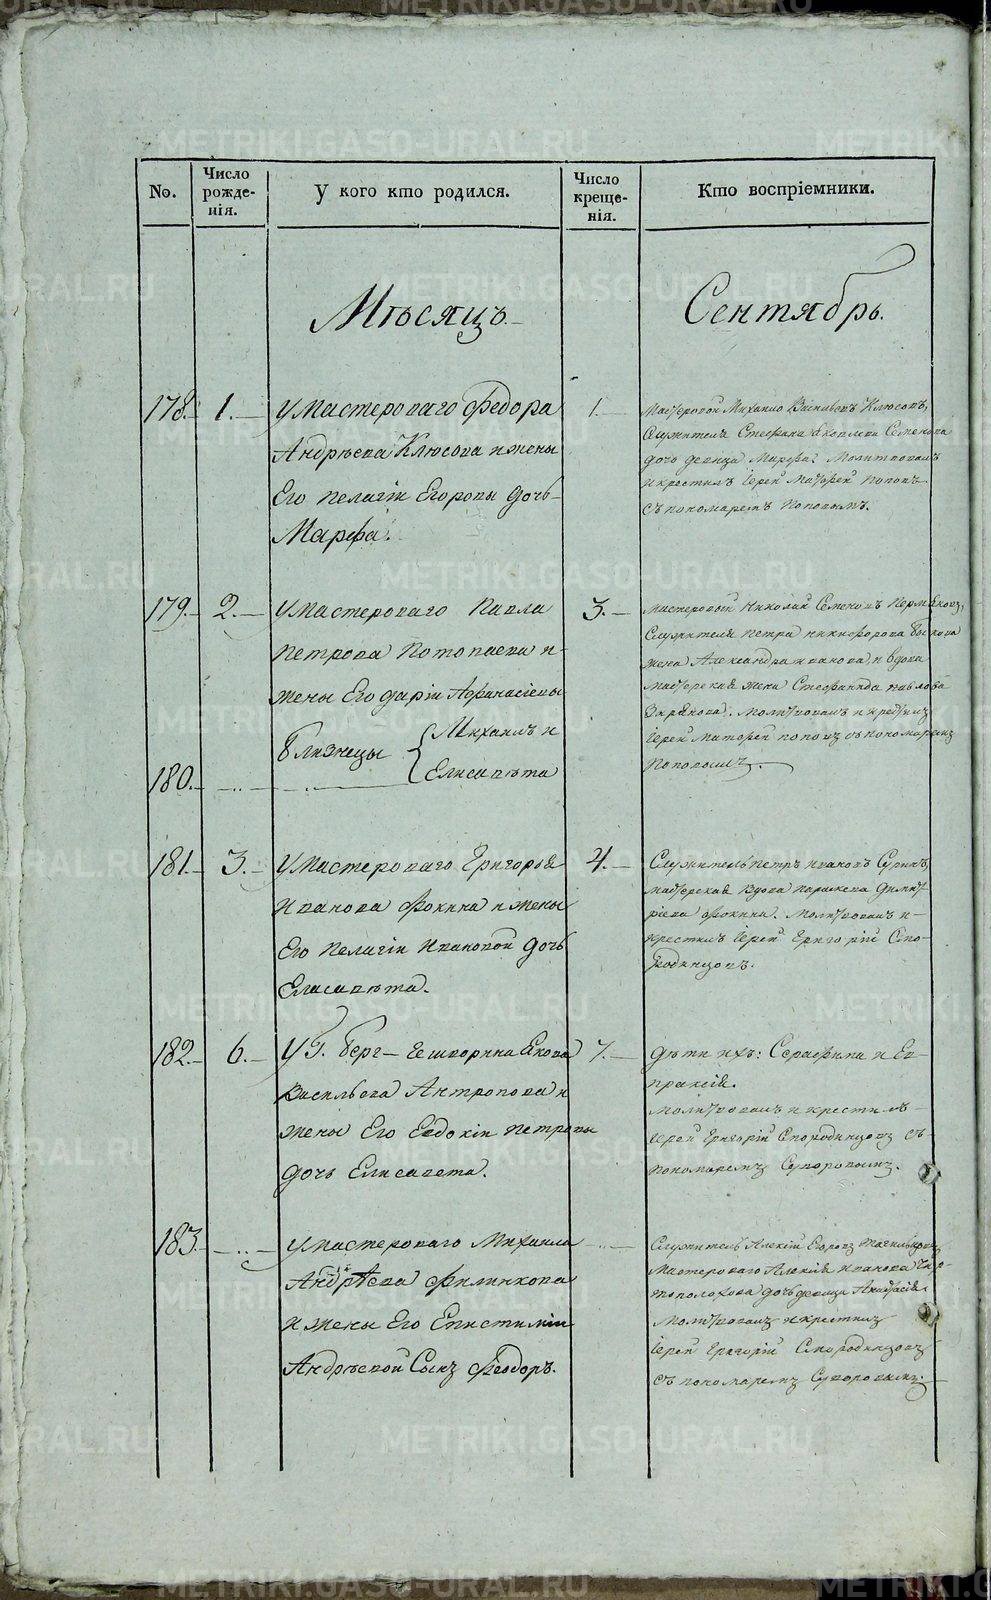 No.
Число рожде-нія.
У кого кто родился.
Число креще-нія.
Кто воспріемники.
Мѣсяцъ.
Сентябрь.
178. 1.
У Мастероваго Федора
Андрѣева Клюсова и жены
Его Пелагіи Егоровы дочь
Марфа.
1.
Мастеровой Михаило Васильевъ Клюсовъ,
Служителя Стефана Яковлева Семенова
дочь девица Марфа. Молитвовалъ
и крестилъ Іерей Матфей Поповъ
съ пономаремъ Поповымъ.
179. 2.
У Мастероваго Павла
Петрова Потопаева и
жены Его Даріи Афанасіевы
Близнецы
Михаилъ и
Елисавѣта
180.
3.
Мастеровой Николай Семеновъ Пермяковъ,
Служителя Петра Никифорова Быкова
жена Александра Иванова, и вдова
мастерская жена Стефанида Павлова
Молитвовалъ и крестилъ
Іерей Матфей Поповъ съ пономаремъ
Поповымъ.
181. 3.
У Мастероваго Григорья
Иванова Фокина и жены
Его Пелагіи Ивановой дочь
Елисавѣта.
4.
Служитель Петръ Ивановъ
мастерская вдова Параскева Димит
ріева Фокина. Молитвовалъ и
крестилъ Іерей Григорій Смо-
родинцовъ.
182. 6.
У Г. Берг-Гешворина Якова
Васильева Антропова и
жены Его Евдокіи Петровы
дочь Елисавета.
7.
Дѣти ихъ: Серафим и Ев-
праксія.
Молитвовалъ и крестилъ
Іерей Григорій Смородинцовъ съ
пономаремъ Суворовымъ.
183.
У Мастероваго Михаила
Андрѣева Филинкова
и жены Его Епистиміи
Андрѣевой Сынъ Феодоръ.
Служитель Алексій Егоровъ
Мастероваго Алексія Иванова Чер-
нополохова дочь девица Анастасія.
Молитвовалъ и крестилъ
Іерей Григорій Смородинцовъ
съ пономаремъ Суворовымъ.
METRIKI.GASO-URAL.RU